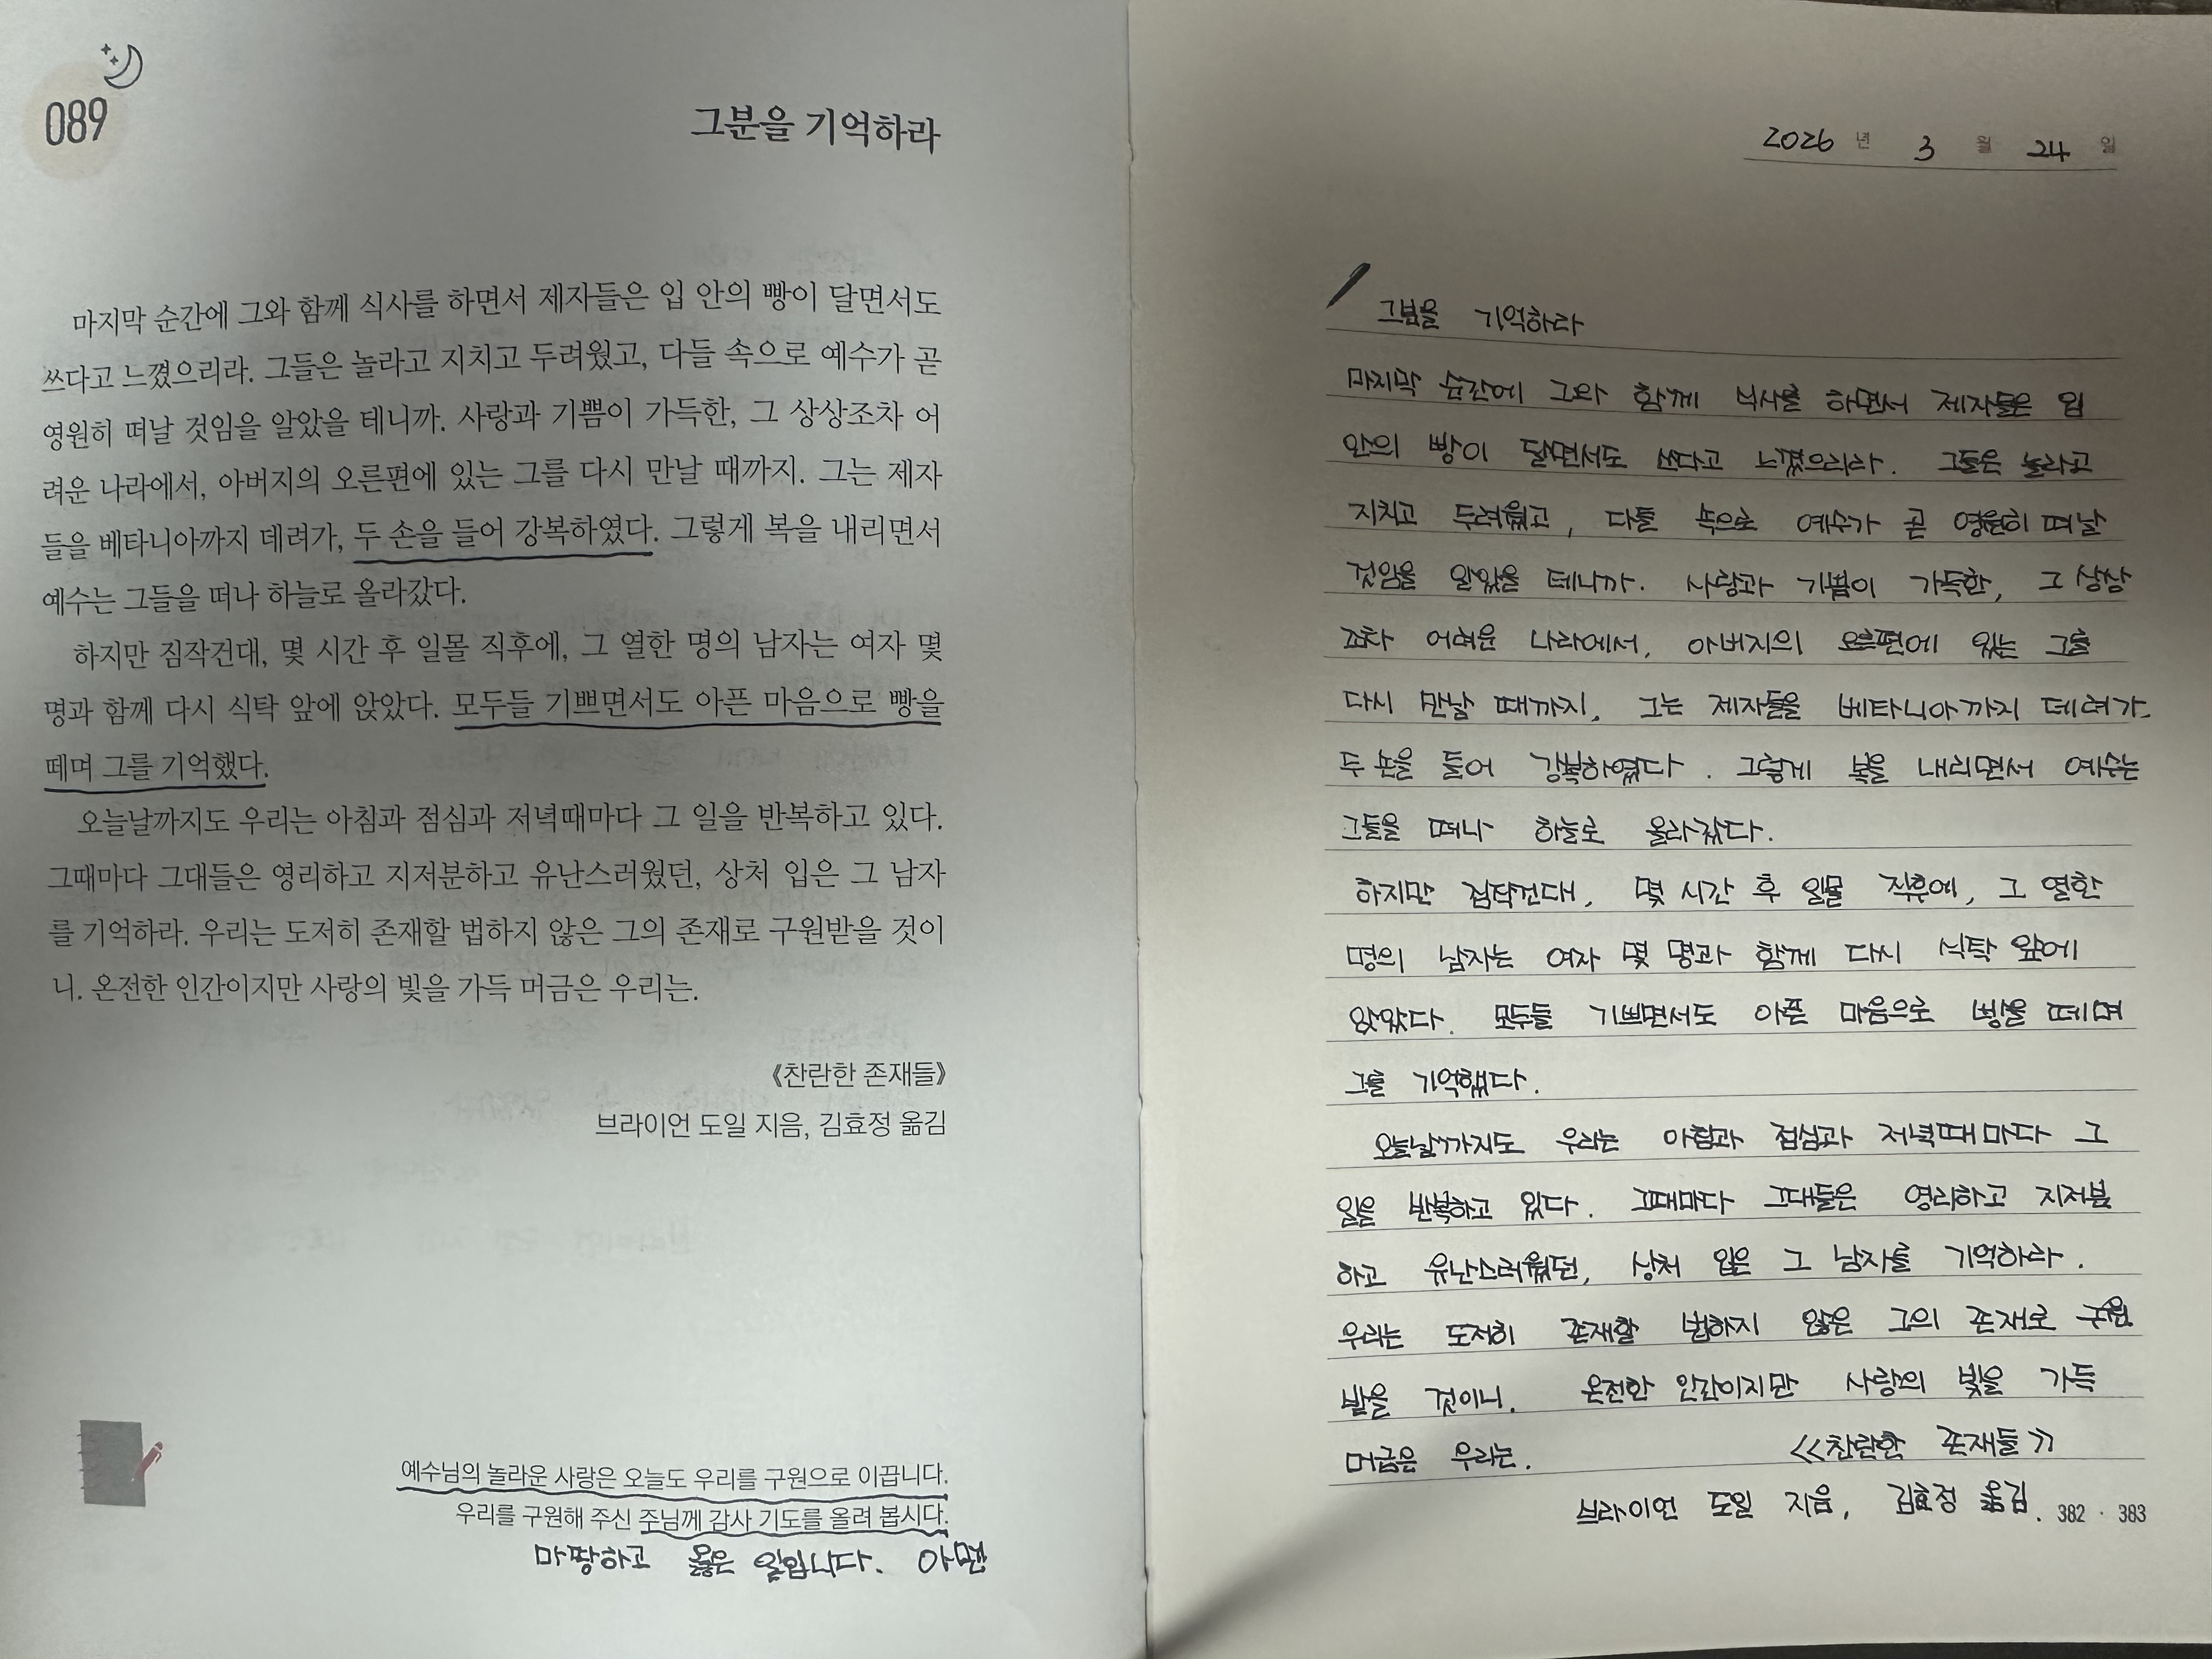 089
그분을 기억하라
마지막 순간에 그와 함께 식사를 하면서 제자들은 입 안의 빵이 달면서도
쓰다고 느꼈으리라. 그들은 놀라고 지치고 두려웠고, 다들 속으로 예수가 곧
영원히 떠날 것임을 알았을 테니까. 사랑과 기쁨이 가득한, 그 상상조차 어
려운 나라에서, 아버지의 오른편에 있는 그를 다시 만날 때까지. 그는 제자
들을 베타니아까지 데려가, 두 손을 들어 강복하였다. 그렇게 복을 내리면서
예수는 그들을 떠나 하늘로 올라갔다.
하지만 짐작건대, 몇 시간 후 일몰 직후에, 그 열한 명의 남자는 여자 몇
명과 함께 다시 식탁 앞에 앉았다. 모두들 기쁘면서도 아픈 마음으로 빵을
떼며 그를 기억했다.
오늘날까지도 우리는 아침과 점심과 저녁때마다 그 일을 반복하고 있다.
그때마다 그대들은 영리하고 지저분하고 유난스러웠던, 상처 입은 그 남자
를 기억하라. 우리는 도저히 존재할 법하지 않은 그의 존재로 구원받을 것이
니. 온전한 인간이지만 사랑의 빛을 가득 머금은 우리는.
《찬란한 존재들》
브라이언 도일 지음, 김효정 옮김
예수님의 놀라운 사랑은 오늘도 우리를 구원으로 이끕니다.
우리를 구원해 주신 주님께 감사 기도를 올려 봅시다.
마땅하고 옳은 일입니다. 아멘
2026 년 3 월 24 일
그분을 기억하라
마지막 순간에 그와 함께 식사를 하면서 제자들은 입
안의 빵이 달면서도 쓰다고 느꼈으리라. 그들은 놀라고
지치고 두려웠고, 다들 속으로 예수가 곧 영원히 떠날
것임을 알았을 테니까. 사랑과 기쁨이 가득한, 그 상상
조차 어려운 나라에서, 아버지의 오른편에 있는 그를
다시 만날 때까지. 그는 제자들을 베타니아까지 데려가,
두 손을 들어 강복하였다. 그렇게 복을 내리면서 예수는
그들을 떠나 하늘로 올라갔다.
하지만 짐작건대, 몇 시간 후 일몰 직후에, 그 열한
명의 남자는 여자 몇 명과 함께 다시 식탁 앞에
앉았다. 모두들 기쁘면서도 아픈 마음으로 빵을 떼며
그를 기억했다.
오늘날까지도 우리는 아침과 점심과 저녁때마다 그
일을 반복하고 있다. 그때마다 그대들은 영리하고 지저분
하고 유난스러웠던, 상처 입은 그 남자를 기억하라.
우리는 도저히 존재할 법하지 않은 그의 존재로 구원
받을 것이니. 온전한 인간이지만 사랑의 빛을 가득
머금은 우리는. 《찬란한 존재들》
브라이언 도일 지음, 김효정 옮김.
382 · 383